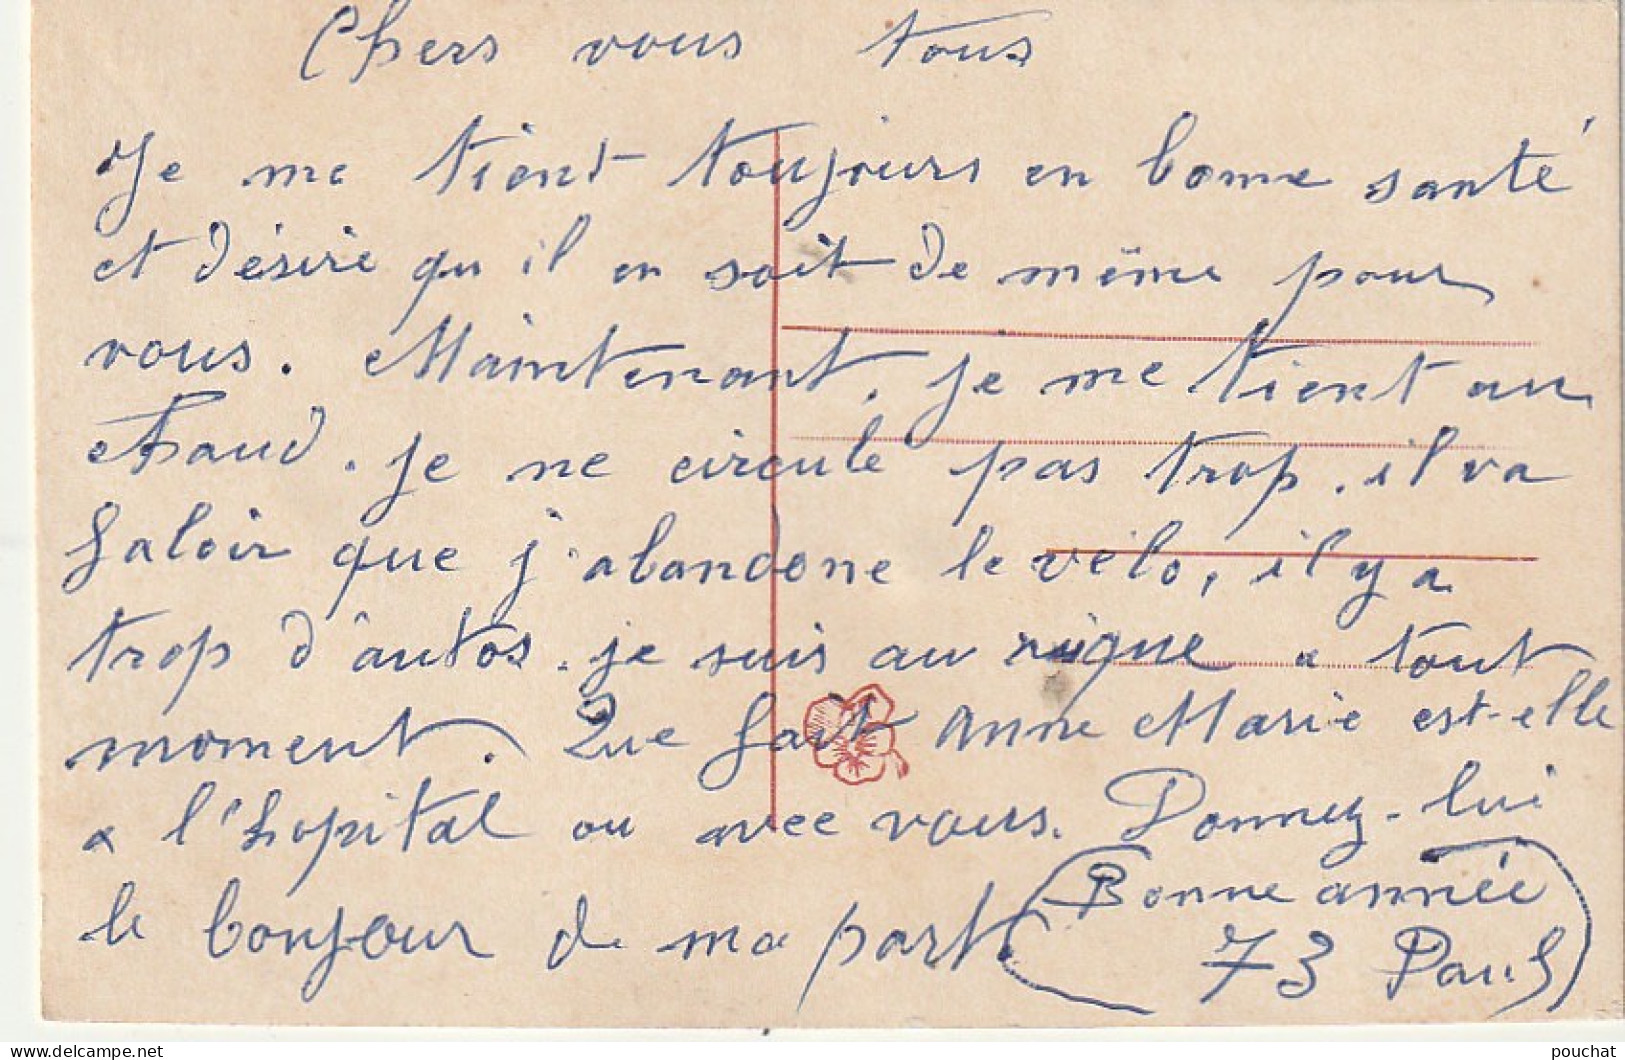 Chers vous tous
Je me tient toujours en bonne santé
et désire qu'il en soit de même pour
vous. Maintenant, je me tient au
chaud. je ne circule pas trop. il va
faloir que j'abandone le vélo, il y a
trop d'autos. je suis au risque a tout
moment. Que fait Anne Marie est-elle
a l'hopital ou avec vous. Donnez-lui
le bonjour de ma part.
Bonne année
73 Paul
pouchat